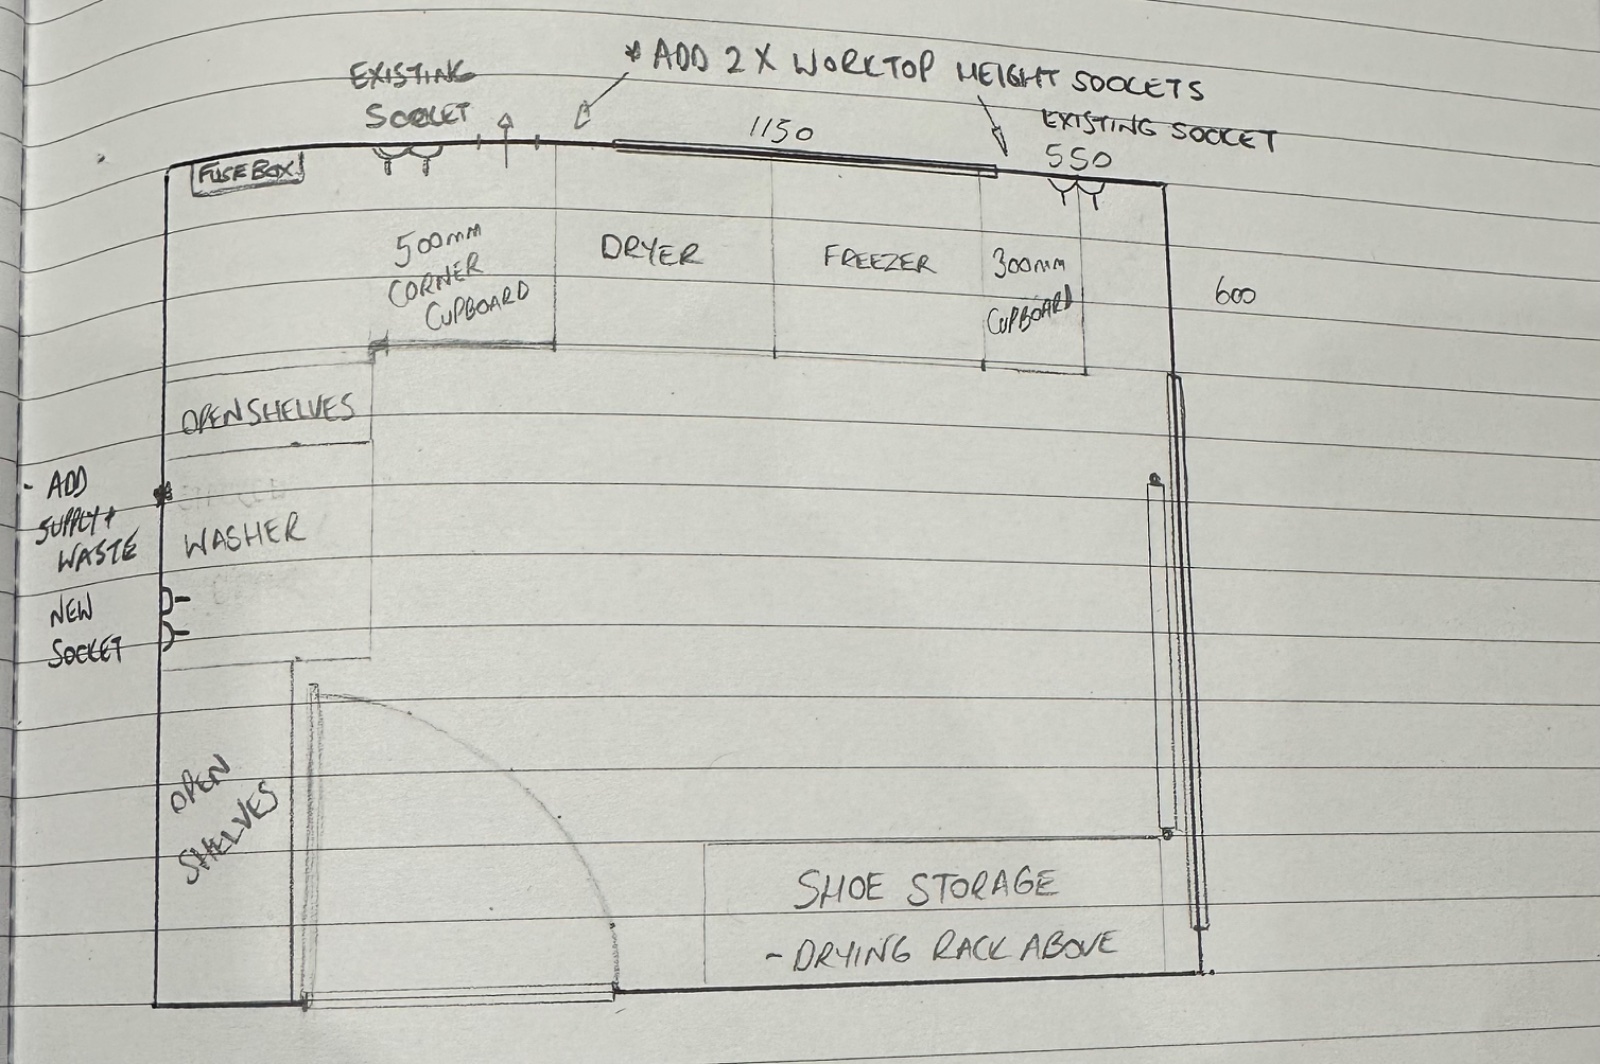 * ADD 2 X WORKTOP HEIGHT SOCKETS
EXISTING
SOCKET
1150
EXISTING SOCKET
550
FUSE BOX
500mm
CORNER
CUPBOARD
DRYER
FREEZER
300mm
CUPBOARD
600
OPEN SHELVES
- ADD
SUPPLY +
WASTE
WASHER
NEW
SOCKET
OPEN
SHELVES
SHOE STORAGE
- DRYING RACK ABOVE